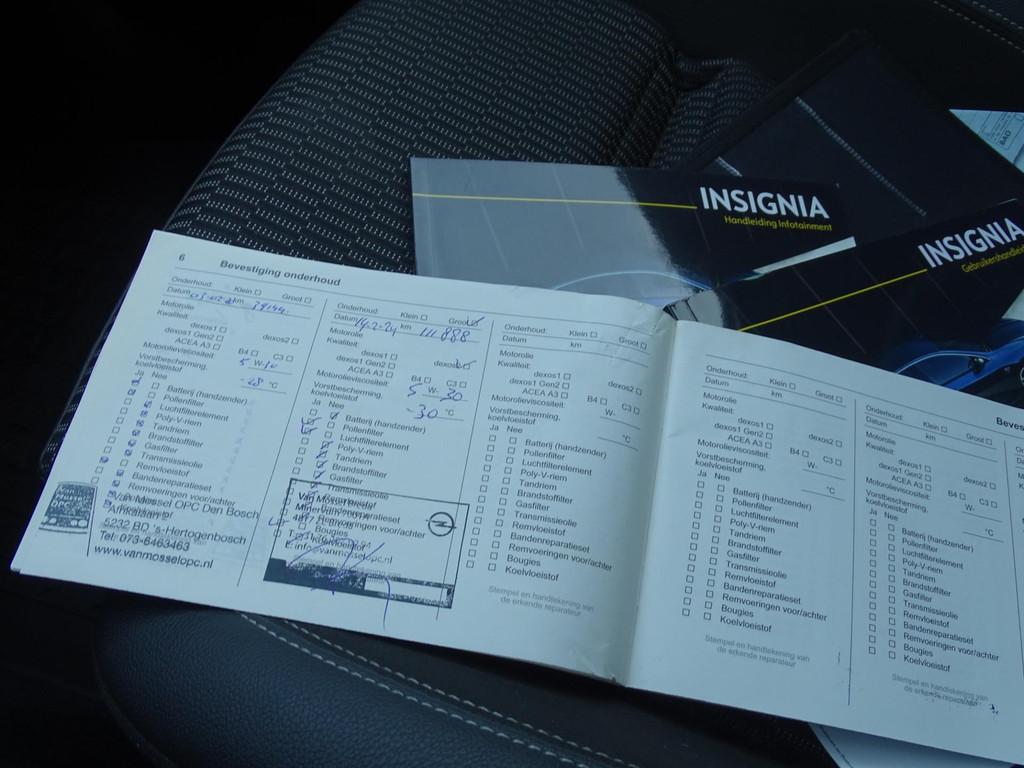 INSIGNIA
Handleiding Infotainment
INSIGNIA
6 Bevestiging onderhoud
Onderhoud: Klein Groot
Datum km
Motorolie
Kwaliteit:
dexos1 dexos2
dexos1 Gen2
ACEA A3
Motorolieviscositeit: B4 C3
5 W-
Vorstbescherming,
koelvloeistof °C
Ja Nee
Batterij (handzender)
Pollenfilter
Luchtfilterelement
Poly-V-riem
Tandriem
Brandstoffilter
Gasfilter
Transmissieolie
Remvloeistof
Bandenreparatieset
Remvoeringen voor/achter
Van Mossel OPC Den Bosch
5232 BD 's-Hertogenbosch
Tel: 073-6463463
www.vanmosselopc.nl
Onderhoud: Klein Groot
Datum 14-2-24 km 111.888
Motorolie
Kwaliteit:
dexos1 dexos2
dexos1 Gen2
ACEA A3
Motorolieviscositeit: B4 C3
5 W- 30
Vorstbescherming,
koelvloeistof -30 °C
Ja Nee
Batterij (handzender)
Pollenfilter
Luchtfilterelement
Poly-V-riem
Tandriem
Brandstoffilter
Gasfilter
Transmissieolie
Remvloeistof
Bandenreparatieset
Remvoeringen voor/achter
Bougies
Koelvloeistof
Onderhoud: Klein Groot
Datum km
Motorolie
Kwaliteit:
dexos1 dexos2
dexos1 Gen2
ACEA A3
Motorolieviscositeit: B4 C3
W-
Vorstbescherming,
koelvloeistof °C
Ja Nee
Batterij (handzender)
Pollenfilter
Luchtfilterelement
Poly-V-riem
Tandriem
Brandstoffilter
Gasfilter
Transmissieolie
Remvloeistof
Bandenreparatieset
Remvoeringen voor/achter
Bougies
Koelvloeistof
Stempel en handtekening van
de erkende reparateur
Onderhoud: Klein Groot
Datum km
Motorolie
Kwaliteit:
dexos1 dexos2
dexos1 Gen2
ACEA A3
Motorolieviscositeit: B4 C3
W-
Vorstbescherming,
koelvloeistof °C
Ja Nee
Batterij (handzender)
Pollenfilter
Luchtfilterelement
Poly-V-riem
Tandriem
Brandstoffilter
Gasfilter
Transmissieolie
Remvloeistof
Bandenreparatieset
Remvoeringen voor/achter
Bougies
Koelvloeistof
Stempel en handtekening van
de erkende reparateur
Onderhoud: Klein Groot
Datum km
Motorolie
Kwaliteit:
dexos1 dexos2
dexos1 Gen2
ACEA A3
Motorolieviscositeit: B4 C3
W-
Vorstbescherming,
koelvloeistof °C
Ja Nee
Batterij (handzender)
Pollenfilter
Luchtfilterelement
Poly-V-riem
Tandriem
Brandstoffilter
Gasfilter
Transmissieolie
Remvloeistof
Bandenreparatieset
Remvoeringen voor/achter
Bougies
Koelvloeistof
Stempel en handtekening van
de erkende reparateur